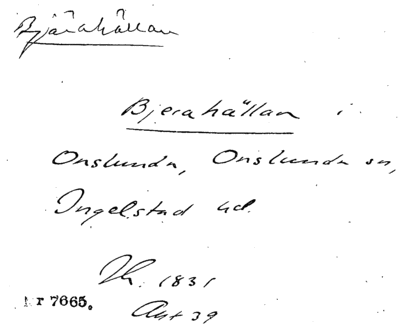 Bjärahällan
Bjerahällan i
Onslunda, Onslunda sn,
Ingelstad hd.
Jh. 1831
Nr 7665.
Akt 39